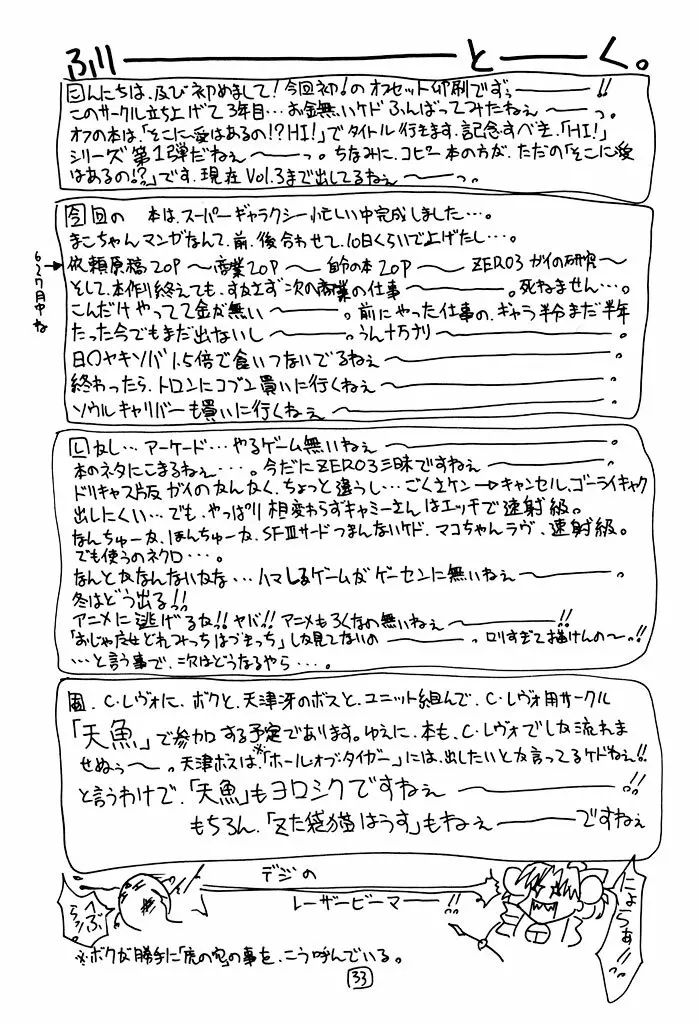 ふ川ーーーとーーく。
こんにちは、及び初めまして！今回初！のオフセット印刷ですぅーーー!!
このサークル立ち上げて3年目…お金無いケドふんばってみたねぇー～ーっ。
オフの本は、「そこに愛はあるの!?HI!」でタイトル行きます、記念すべき、「HI!」
シリーズ第1弾だねぇー～ーっ。ちなみに、コピー本の方が、ただの「そこに愛
はあるの!?」です、現在Vol.3まで出してるねぇー～ーっ。
今回の 本は、スーパーギャラクシー忙しい中完成しました…。
まこちゃんマンガなんて、前、後合わせて、10日くらいで上げたし…。
6と7月中ね
依頼原稿20P～商業20P～自分の本20P～ZERO3ガイの研究～
そして、本作り終えても、すぐさま次の商業の仕事ー～ー。死ねません…。
こんだけやってて金が無いー～ー。前にやった仕事の、ギャラ半分まだ半年
たった今でもまだ出ないしー～ー。うん十万ナリー～ー。
日〇ヤキソバ1.5倍で食いつないでるねぇー～ー。
終わったら、トロンにコブン買いに行くねぇー～ー。
ソウルキャリバーも買いに行くねぇー～ー。
しかし…アーケード…やるゲーム無いねぇー～ー。
本のネタにこまるねぇ…。今だにZERO3三昧ですねぇー～ー。
ドリキャス版ガイのなんなく、ちょっと違うし…ごくさケン→キャンセル、ゴーライキャク
出しにくい…でも、やっぱり相変わらずキャミーさんはエッチで速射級。
なんちゅーか、ほんちゅーか、SFⅢサードつまんないケド、マコちゃんラヴ、速射級。
でも使うのネクロ…。
なんとかなんないかな…ハマしるゲームがゲーセンに無いねぇー～ー。
冬はどう出る!!
アニメに逃げるな!!ヤバ!!アニメもろくなの無いねぇー～ー!!
「おじゃ女せどれみっちはづきっち」しか見てないのー～ー。ロリすぎて描けんのー～。!!
…と言う事で、次はどうなるやら…。
C・レヴォに、ボクと、天津冴のボスと、ユニット組んで、C・レヴォ用サークル
「天魚」で参加する予定であります。ゆえに、本も、C・レヴォでしか流れま
せぬぅー～。天津ボスは、※「ホールオブタイガー」には、出したいとか言ってるケドねぇ!!
と言うわけで、「天魚」もヨロシクですねぇー～ー!!
もちろん、「ズた袋猫はうす」もねぇー～ーですねぇ
デジの
レーザービーマー～ー!!
へぶらっ!!
にょらぁ!!
※ボクが勝手に「虎の穴」の事を、こう呼んでいる。
33